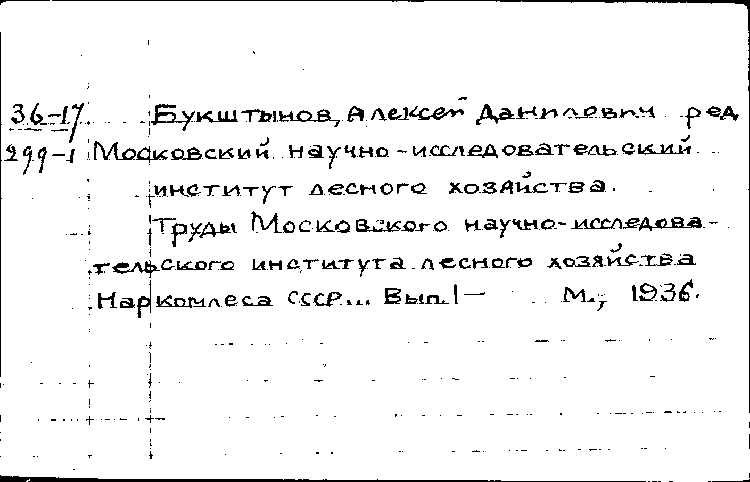 36-17 Букштынов, Алексей Данилович ред
299-1 Московский научно-исследовательский
институт лесного хозяйства.
Труды Московского научно-исследова-
тельского института лесного хозяйства
Наркомлеса СССР... Вып. 1— М., 1936.